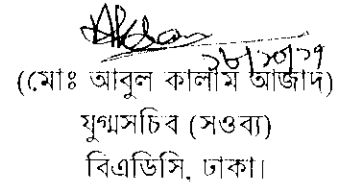 ১৮/১০/১৭
((মোঃ আবুল কালাম আজাদ)
যুগ্মসচিব (সওব্য)
বিএডিসি, ঢাকা।